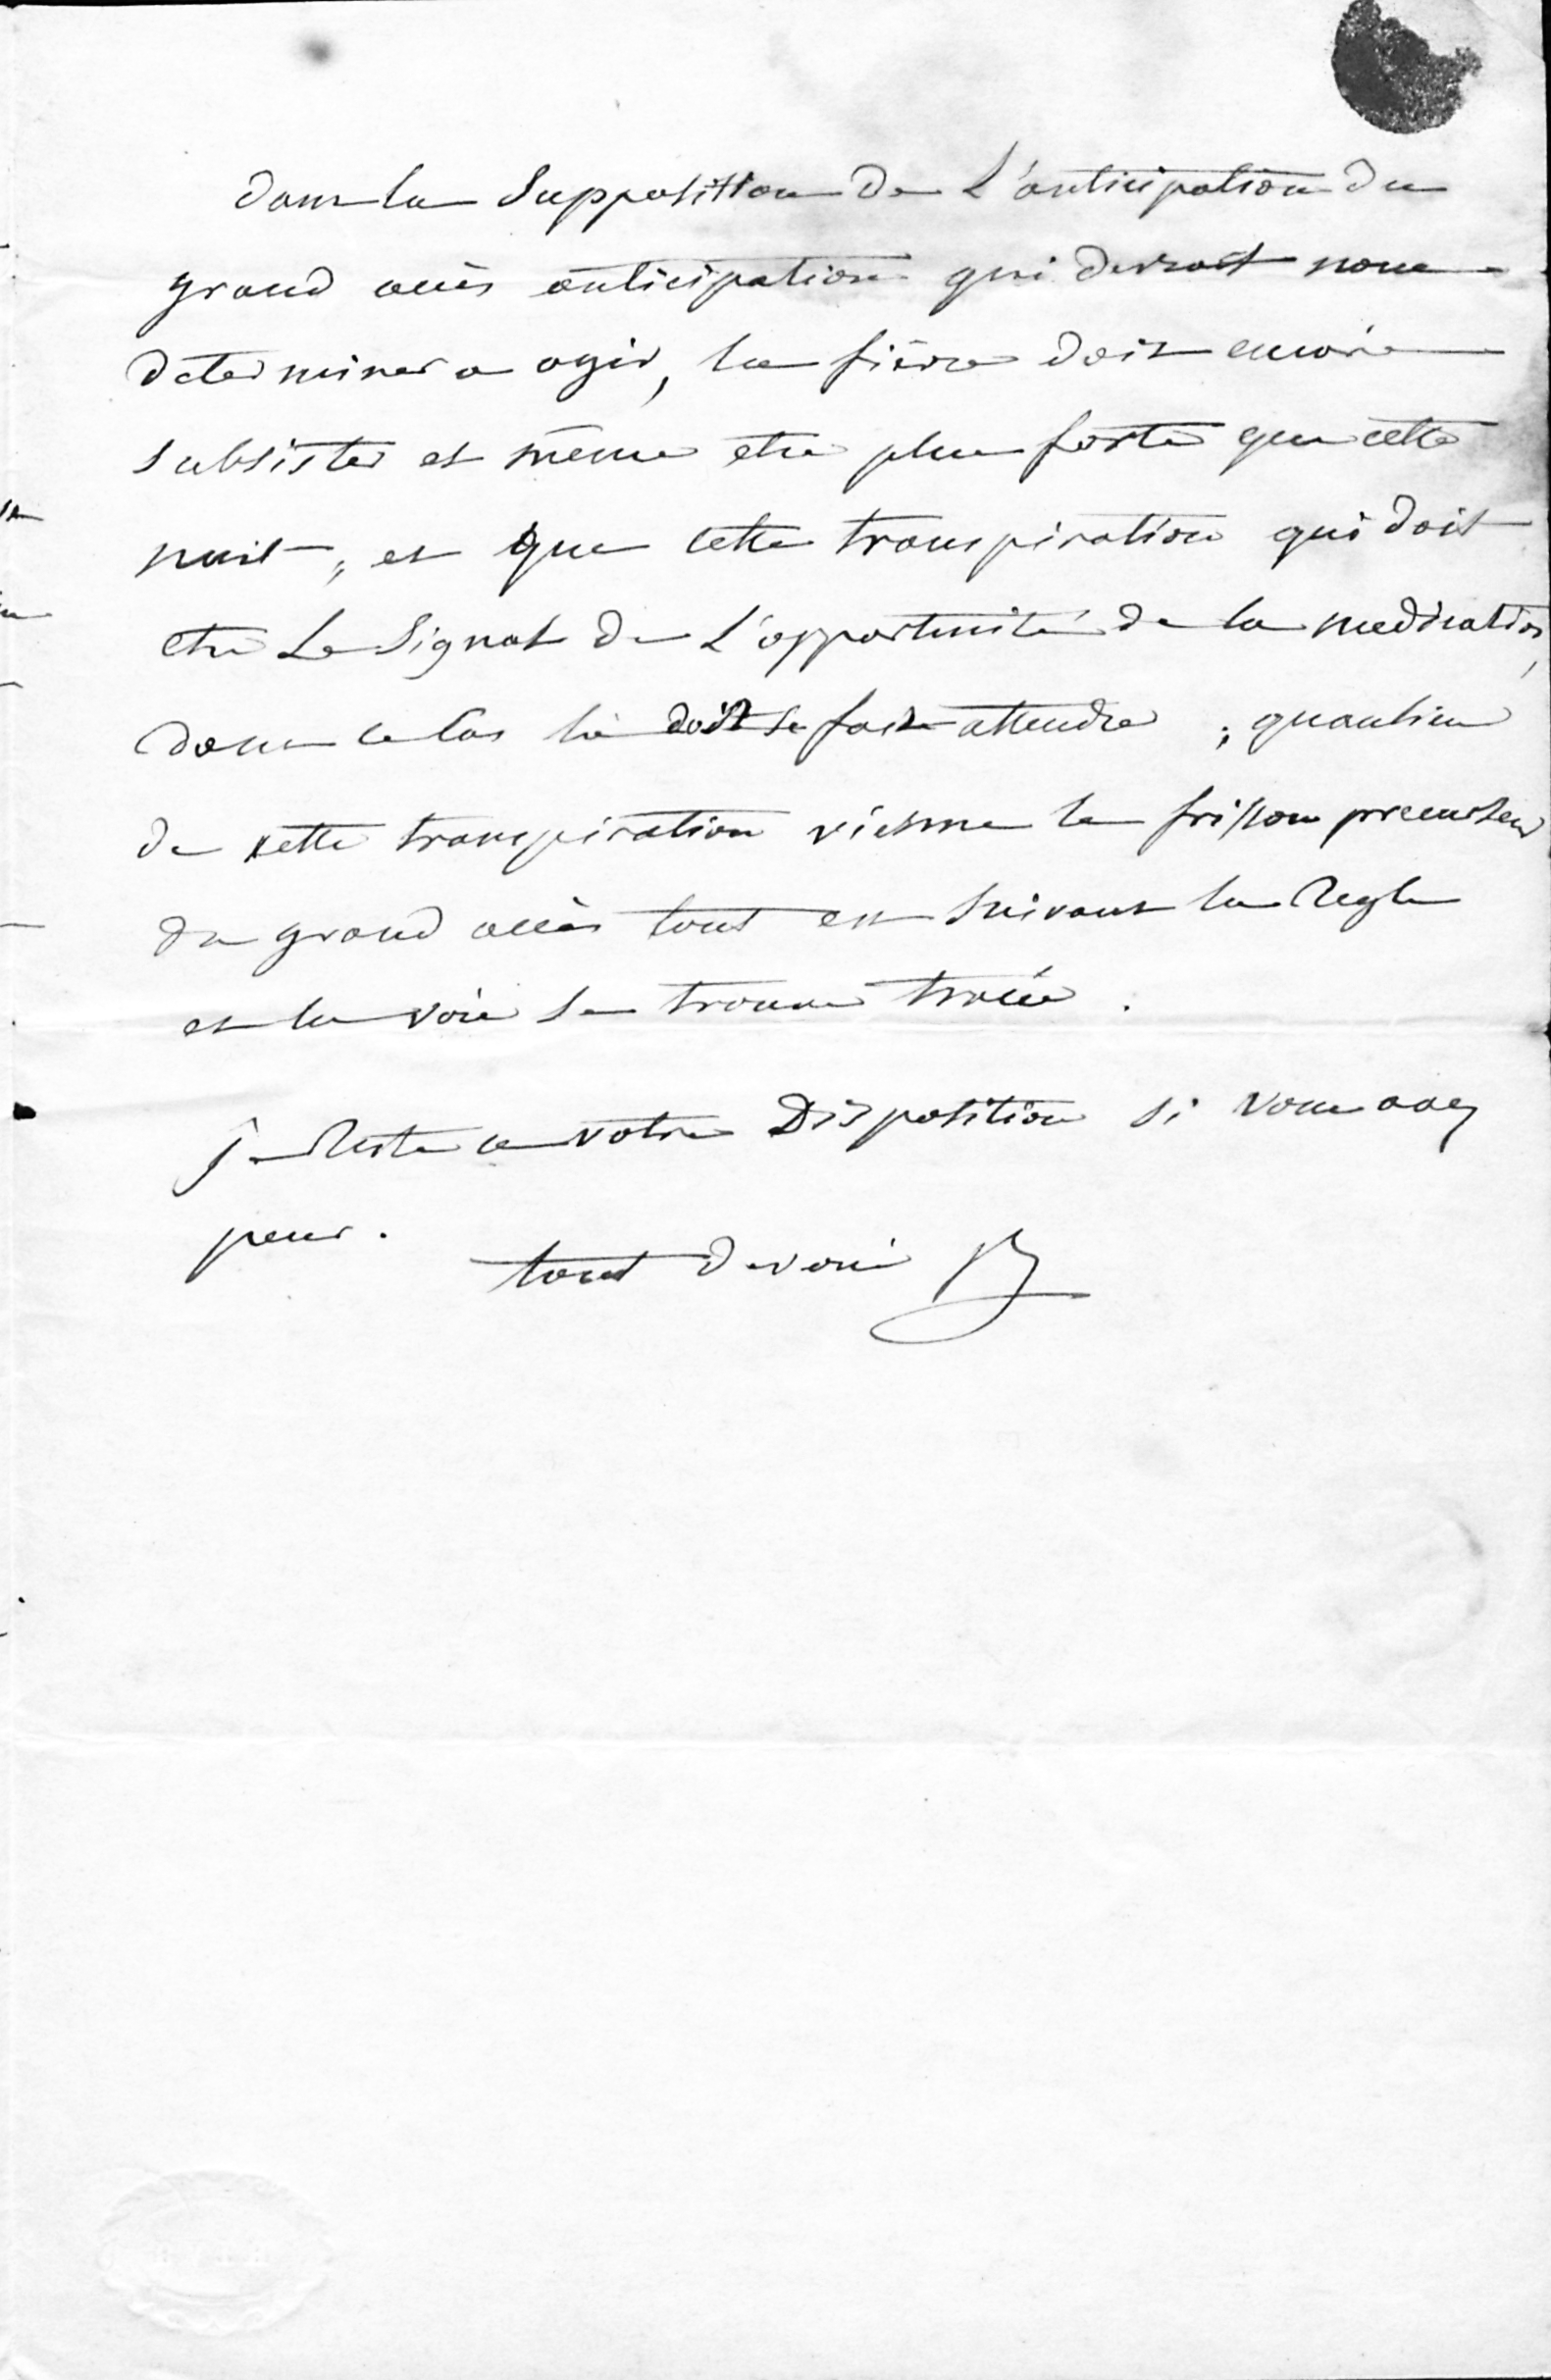 dans la Supposition de L'anticipation du
grand accès anticipation qui devrait nous
determiner a agir, la fièvre doit encore
subsister et même etre plus forte que cette
nuit, et que cette transpiration qui doit
etre Le Signal de L'opportunité de la medication,
dans ce Cas là doit se faire attendre ; qu'au lieu
de cette transpiration vienne le frisson precurseur
du grand accès tout est suivant la Regle
et la voie se trouve tracée.
je Reste a votre Disposition si vous avez
peur.
tout devoué